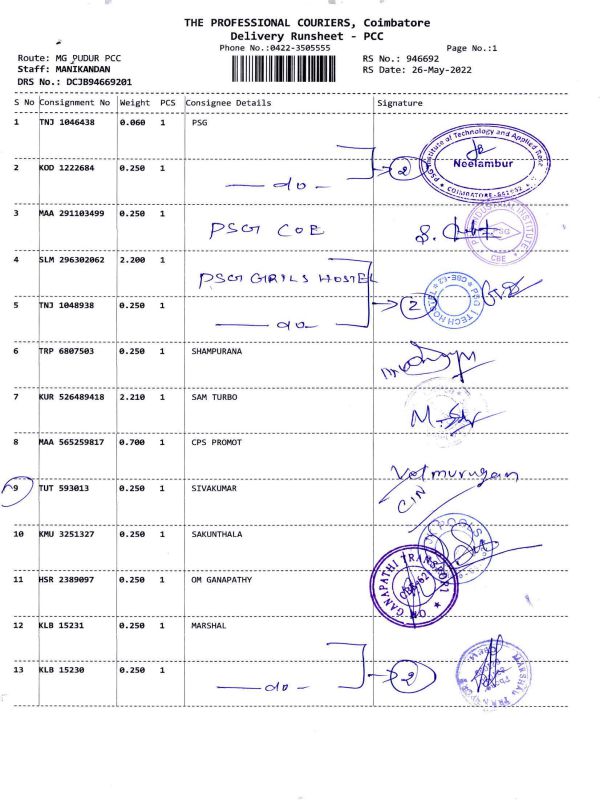 THE PROFESSIONAL COURIERS, Coimbatore
Delivery Runsheet - PCC
Phone No.:0422-3505555 Page No.:1
Route: MG PUDUR PCC RS No.: 946692
Staff: MANIKANDAN RS Date: 26-May-2022
DRS No.: DCJB94669201
S No Consignment No Weight PCS Consignee Details Signature
1 TNJ 1046438 0.060 1 PSG
PSG Institute of Technology and Applied Rese
Neelambur
COIMBATORE-641062
2 KOD 1222684 0.250 1 do 2
3 MAA 291103499 0.250 1 PSG COE
PSG INDUSTRIAL INSTITUTE
PSG
CBE
4 SLM 296302062 2.200 1 PSG GIRLS HOSTEL
5 TNJ 1048938 0.250 1 do 2
PSG I TECH HOSTEL CBE-62
6 TRP 6807503 0.250 1 SHAMPURANA
7 KUR 526489418 2.210 1 SAM TURBO
8 MAA 565259817 0.700 1 CPS PROMOT
9 TUT 593013 0.250 1 SIVAKUMAR Velmurugan
CIN
10 KMU 3251327 0.250 1 SAKUNTHALA
11 HSR 2389097 0.250 1 OM GANAPATHY
OM GANAPATHI TRANSPORT
12 KLB 15231 1 0.250 1 MARSHAL
13 KLB 15230 0.250 1 do 2